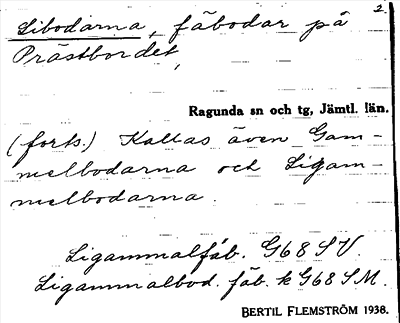 2.
Libodarna, fäbodar på
Prästbordet,
Ragunda sn och tg, Jämtl. län.
(forts.) Kallas även Gam-
melbodarna och Ligam-
melbodarna.
Ligammalfäb. G68 SV.
Ligammalbod. fäb. k G68 SM.
BERTIL FLEMSTRÖM 1938.